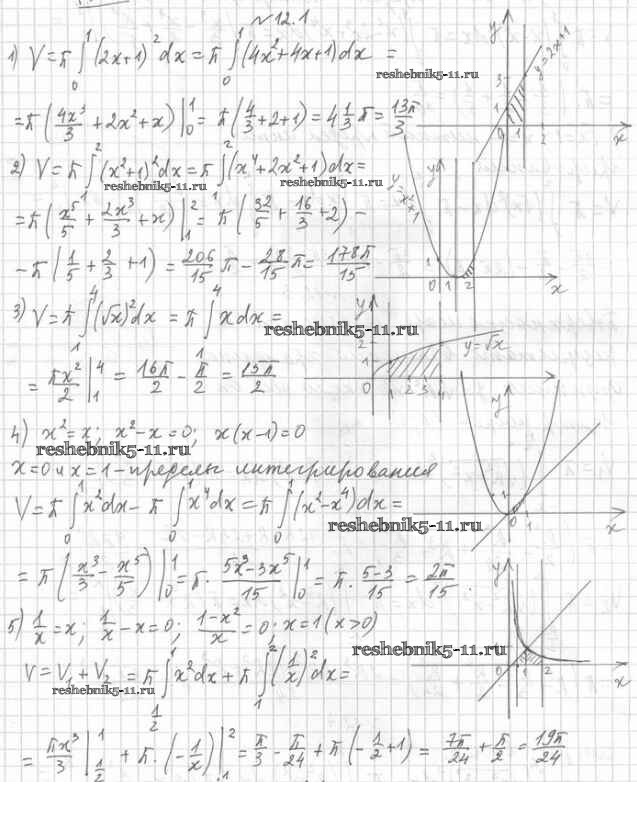 №12.1
1) V = π∫₀¹(2x+1)²dx = π∫₀¹(4x²+4x+1)dx =
= π(4x³/3 + 2x² + x)|₀¹ = π(4/3+2+1) = 4 1/3 π = 13π/3
y=2x+1
reshebnik5-11.ru
2) V = π∫₁²(x²+1)²dx = π∫₁²(x⁴+2x²+1)dx =
reshebnik5-11.ru
reshebnik5-11.ru
= π(x⁵/5 + 2x³/3 + x)|₁² = π(32/5 + 16/3 + 2) −
− π(1/5 + 2/3 + 1) = 206/15 π − 28/15 π = 178π/15
y=x²+1
3) V = π∫₁⁴(√x)²dx = π∫₁⁴ x dx =
reshebnik5-11.ru
= πx²/2 |₁⁴ = 16π/2 − π/2 = 15π/2
y=√x
4) x²=x; x²−x=0; x(x−1)=0
reshebnik5-11.ru
x=0 и x=1 - пределы интегрирования
V = π∫₀¹x²dx − π∫₀¹x⁴dx = π∫₀¹(x²−x⁴)dx =
reshebnik5-11.ru
= π(x³/3 − x⁵/5)|₀¹ = π·(5x³−3x⁵)/15 |₀¹ = π·(5−3)/15 = 2π/15.
5) 1/x = x; 1/x − x = 0; (1−x²)/x = 0; x=1 (x>0)
reshebnik5-11.ru
V = V₁+V₂ = π∫_{1/2}^{1} x²dx + π∫₁²(1/x)²dx =
reshebnik5-11.ru
= πx³/3 |_{1/2}^{1} + π·(−1/x)|₁² = π/3 − π/24 + π(−1/2+1) = 7π/24 + π/2 = 19π/24